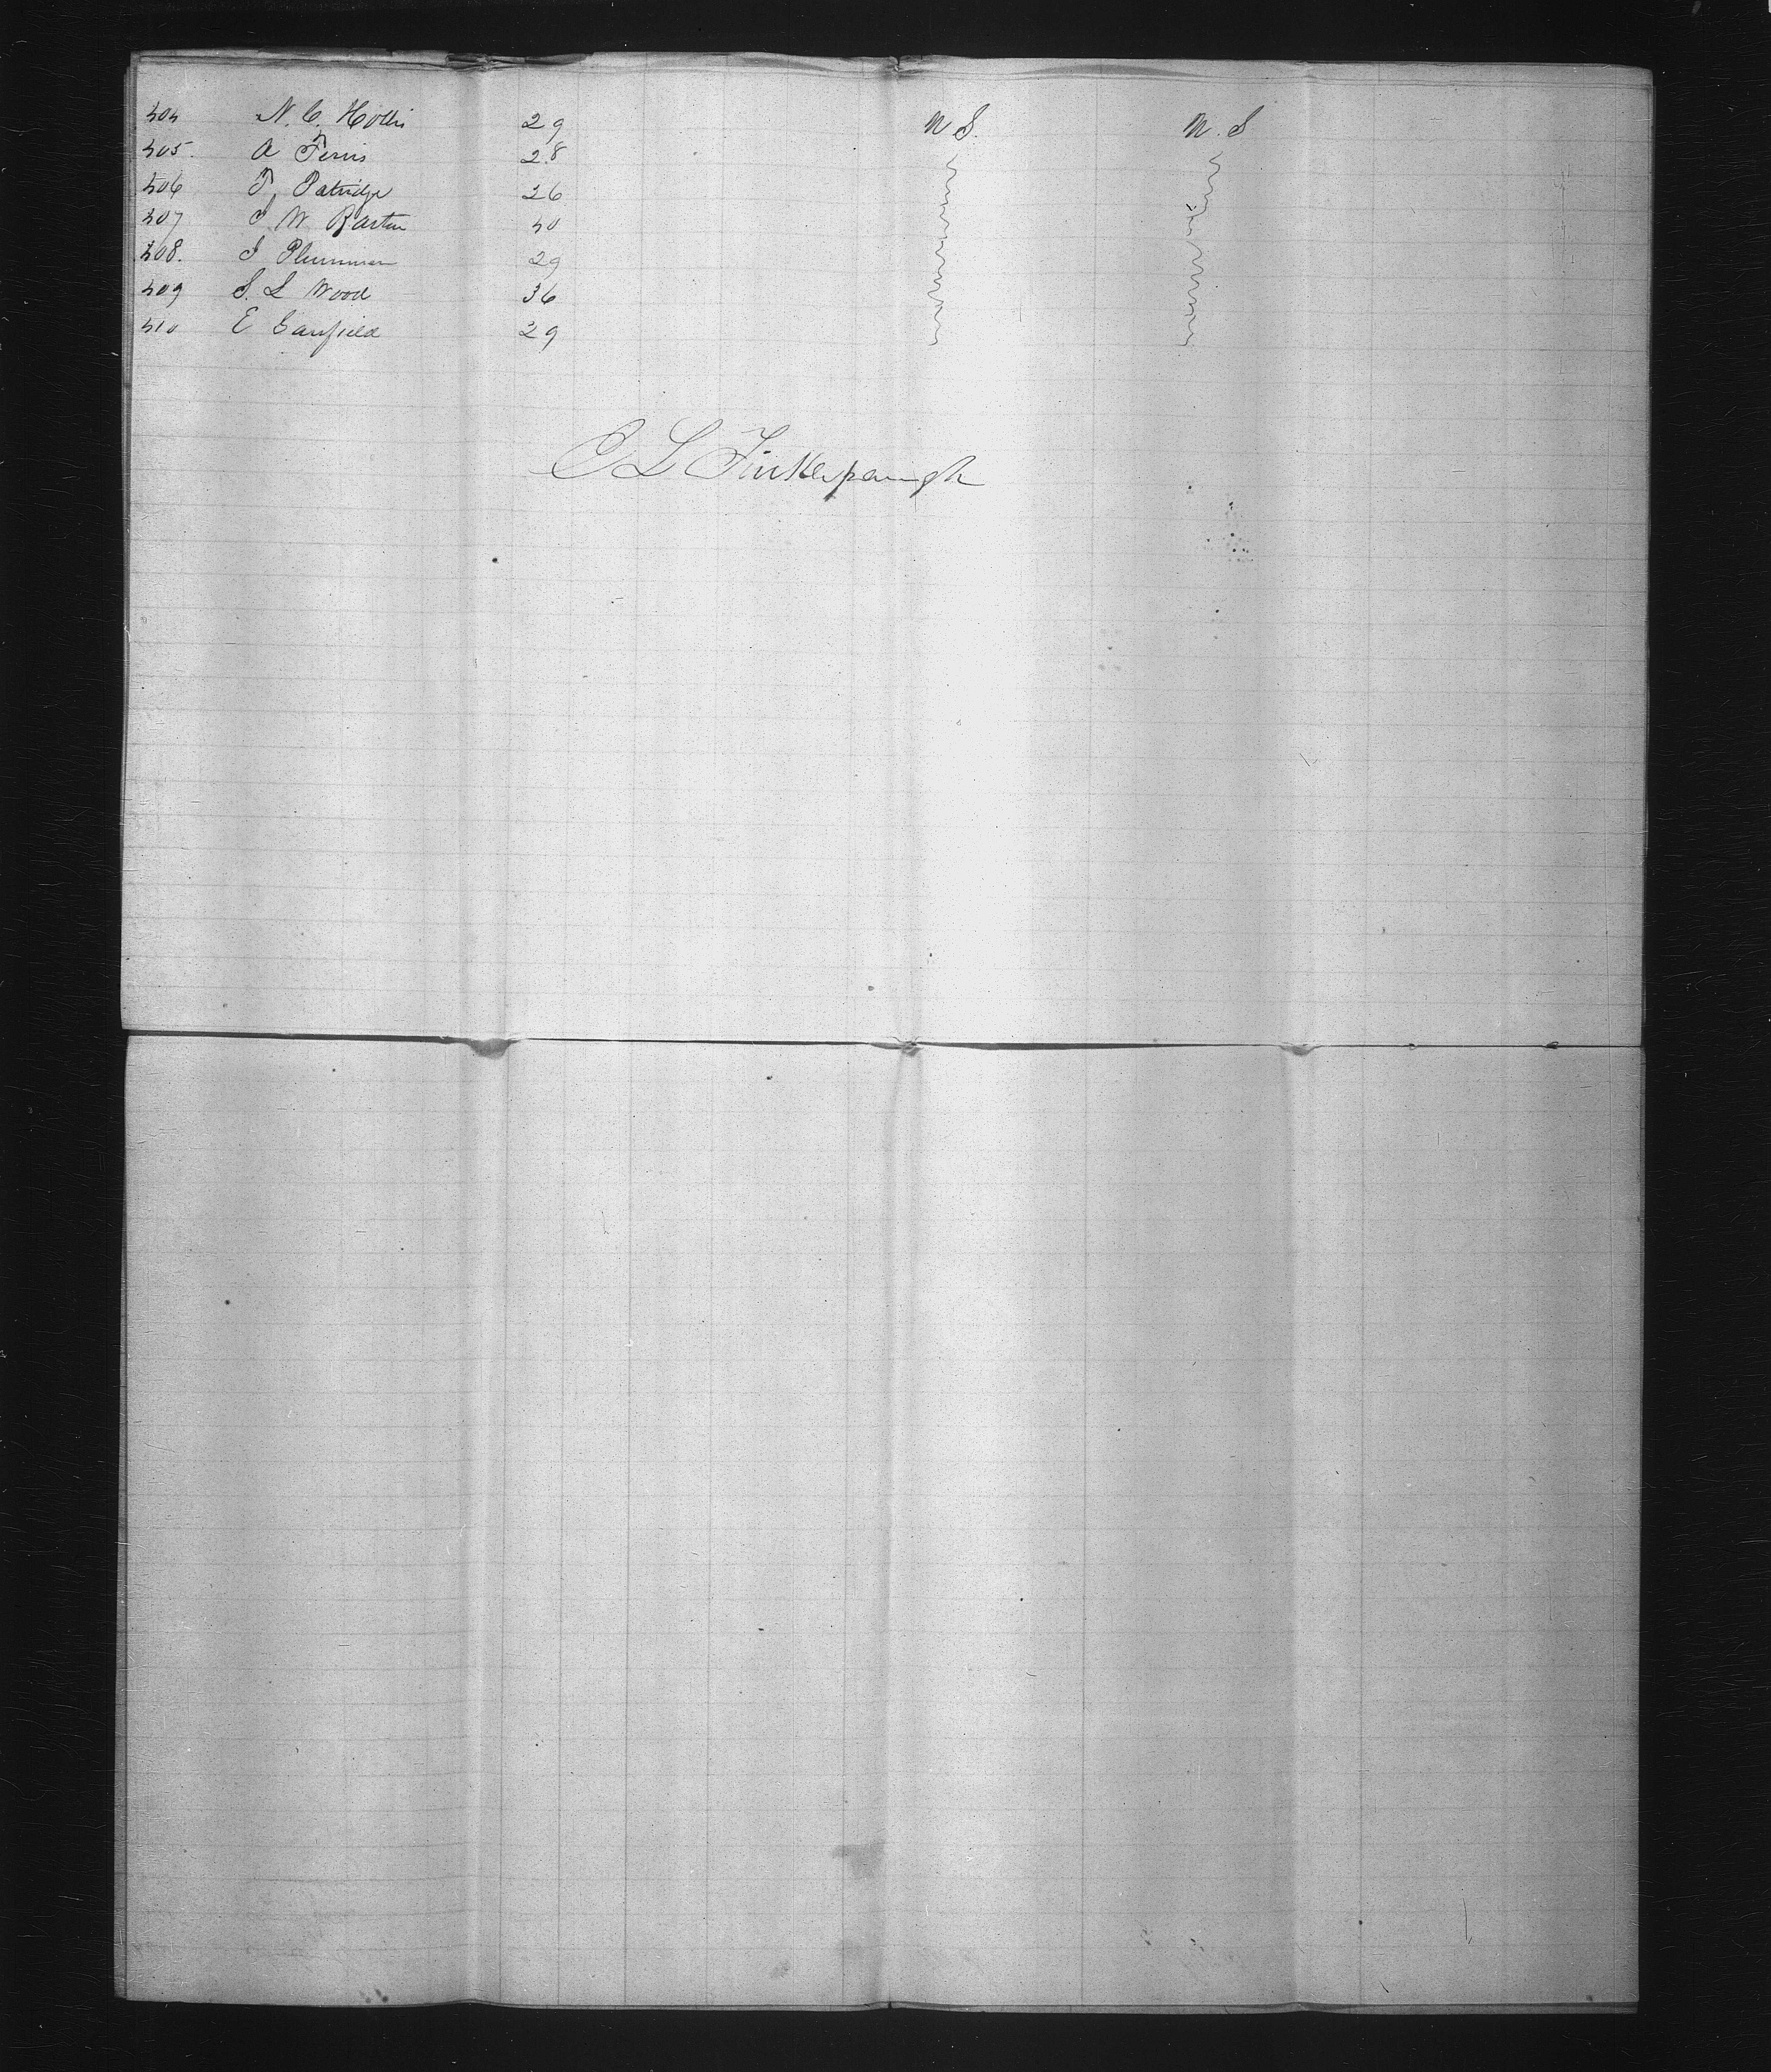 404 N. C. Hollis 29 U S. U. S
405. A Ferris 28
406 T, Patridge 26
407 J. W. Barton 40
408. J Plummer 29
409 S. L Wood 36
410 E Canfield 29
E L Tinklepaugh